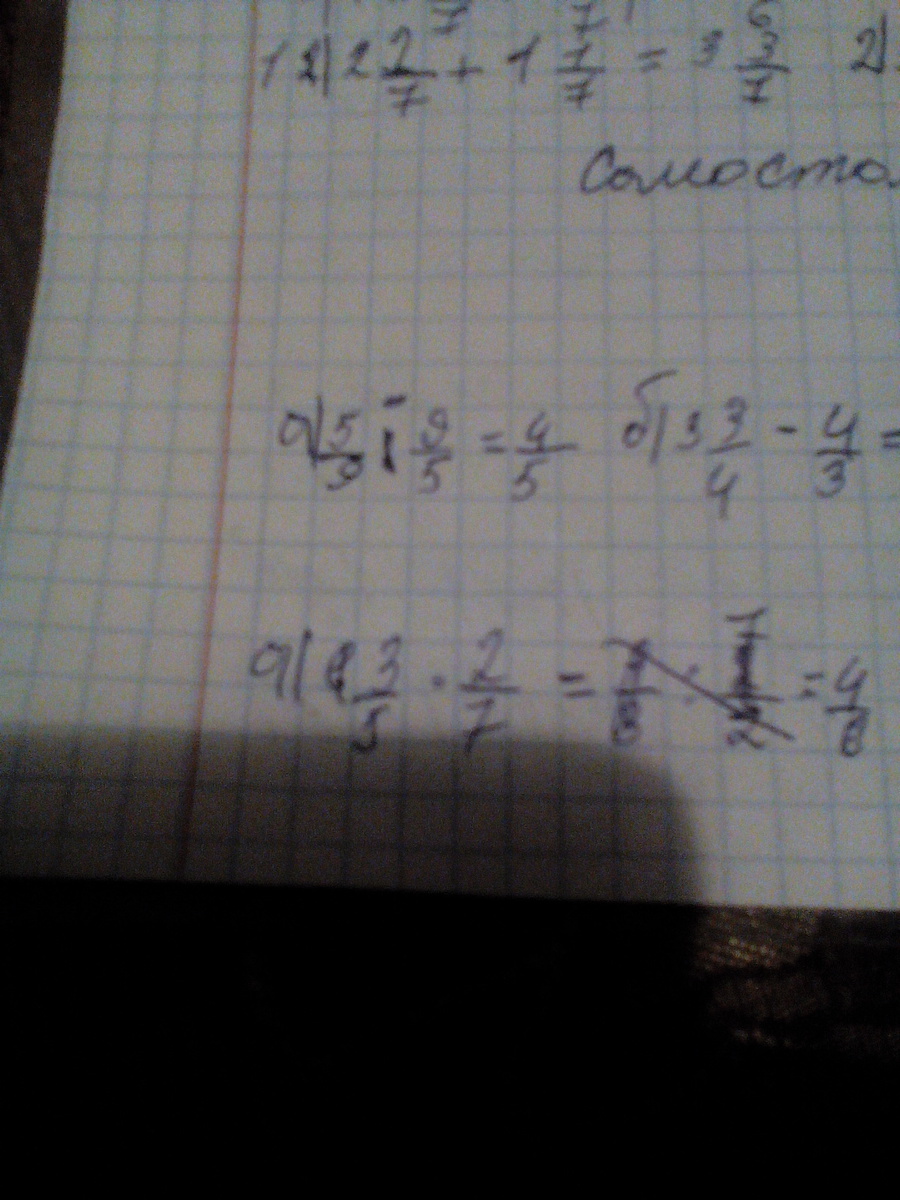 12) 2 2/7 + 1 1/7 = 3 3/7 2)
Самосто
а) 5/9 : 9/5 = 4/5 б) 3 3/4 - 4/3 =
а) 3/5 · 2/7 = = 4/8